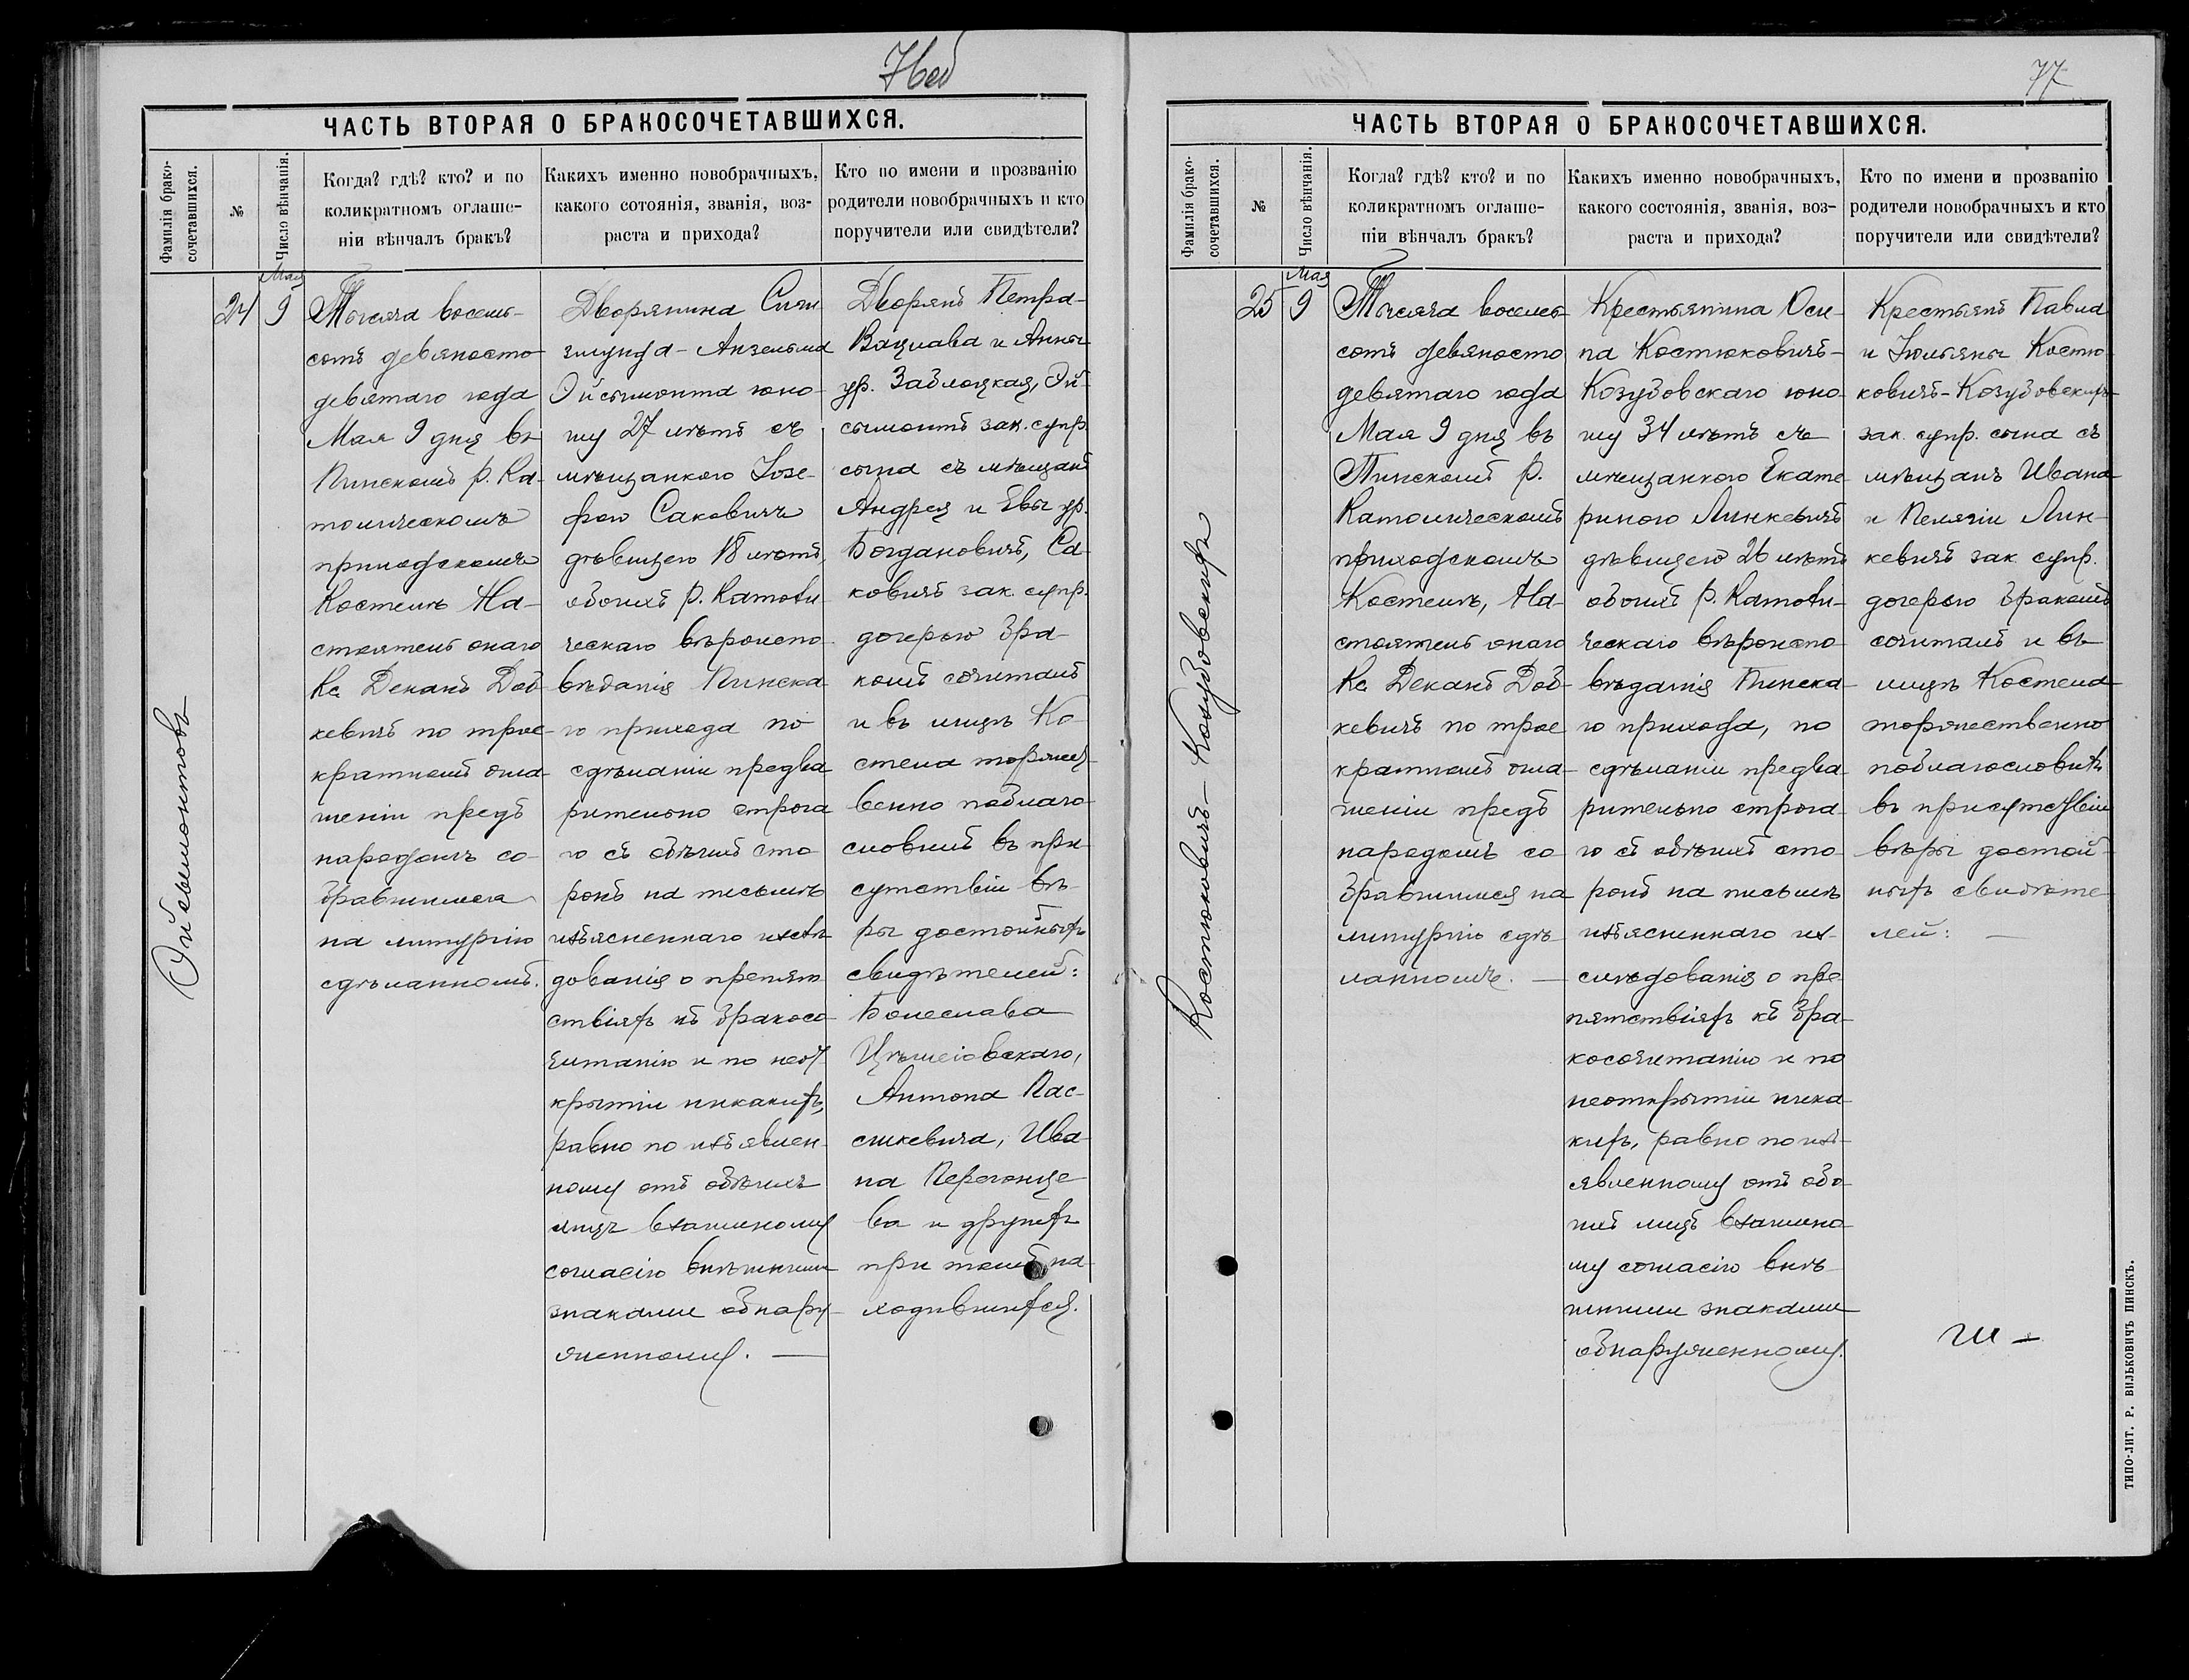 76об
ЧАСТЬ ВТОРАЯ О БРАКОСОЧЕТАВШИХСЯ.
Фамилія брако-
сочетавшихся.
№
Число вѣнчанія.
Когда? гдѣ? кто? и по
коликратномъ оглаше-
ніи вѣнчалъ бракъ?
Какихъ именно новобрачныхъ,
какого сотоянія, званія, воз-
раста и прихода?
Кто по имени и прозванію
родители новобрачныхъ и кто
поручители или свидѣтели?
Ойсымонтовъ
24
Мая
9
Тысяча восемь-
сотъ девяносто
девятаго года
Мая 9 дня въ
Пинскомъ р. Ка-
толическомъ
приходскомъ
Костелѣ На-
стоятель онаго
Кс. Деканъ Доб-
кевичъ по трое-
кратномъ огла-
шеніи предъ
народомъ со-
бравшимся
на литургію
сдѣланномъ.
Дворянина Сиги-
змунда-Анзельма
Ойсымонта юно-
шу 27 лѣтъ съ
мѣщанкою Іозе-
фою Саковичъ
дѣвицею 18 лѣтъ,
обоихъ р. Католи-
ческаго вѣроиспо-
вѣданія Пинска-
го прихода по
сдѣланіи предва-
рительно строга-
го съ обѣихъ сто-
ронъ на письмѣ
изъясненнаго изслѣ-
дованія о препят-
ствіяхъ къ бракосо-
читанію и по неот-
крытіи никакихъ,
равно по изъявлен-
ному отъ обѣихъ
лицъ взаимному
согласію внѣшними
знаками обнару-
женному. —
Дворянъ Петра-
Вацлава и Анны
ур. Заблоцкая, Ой-
сымонтъ зак. супр.
сына съ мѣщанъ
Андрея и Евы ур.
Богдановичъ, Са-
ковичъ зак. супр.
дочерью бра-
комъ сочиталъ
и въ лицѣ Ко-
стела торжест-
венно поблаго-
словилъ въ при-
сутствіи вѣ-
ры достойныхъ
свидѣтелей:
Болеслава
Антона Пас-
сикевича, Ива-
на
ва и другихъ
при томъ на-
ходившихся.
77
ЧАСТЬ ВТОРАЯ О БРАКОСОЧЕТАВШИХСЯ.
Фамилія брако-
сочетавшихся.
№
Число вѣнчанія.
Когла? гдѣ? кто? и по
коликратномъ оглаше-
ніи вѣнчалъ бракъ?
Какихъ именно новобрачныхъ,
какого состоянія, званія, воз-
раста и прихода?
Кто по имени и прозванію
родители новобрачныхъ и кто
поручители или свидѣтели?
Костюковичъ-Козубовскихъ
25
Мая
9
Тысяча восемь
сотъ девяносто
девятаго года
Мая 9 дня въ
Пинскомъ р.
Католическомъ
приходскомъ
Костелѣ, На-
стоятель онаго
Кс. Деканъ Доб-
кевичъ по трое
кратномъ огла-
шеніи предъ
народомъ со
бравшимся на
литургію сдѣ-
ланномъ. —
Крестьянина Оси-
па Костюковичъ-
Козубовскаго юно-
шу 34 лѣтъ съ
мѣщанкою Екате-
риною Линкевичъ
дѣвицею 26 лѣтъ
обоихъ р. Католи-
ческаго вѣроиспо-
вѣданія Пинска-
го прихода, по
сдѣланіи предва-
рительно строга-
го съ обѣихъ сто-
ронъ на письмѣ
изъясненнаго из-
слѣдованія о пре-
пятствіяхъ къ бра-
косочитанію и по
неоткрытіи ника-
кихъ, равно по изъ-
явленному отъ обо-
ихъ лицъ взаимно-
му согласію внѣ-
шними знаками
обнаруженному.
Крестьянъ Павла
и Юльяны Костю
ковичъ-Козубовскихъ
зак. супр. сына съ
мѣщанъ Ивана
и Пелагіи Лин-
кевичъ зак супр.
дочерью бракомъ
сочиталъ и въ
лицѣ Костела
торжественно
поблагословилъ
въ присутствіи
вѣры достой-
ныхъ свидѣте
лей: —
ТИПО-ЛИТ. Р. ВИЛЬКОВИЧЪ ПИНСКЪ.